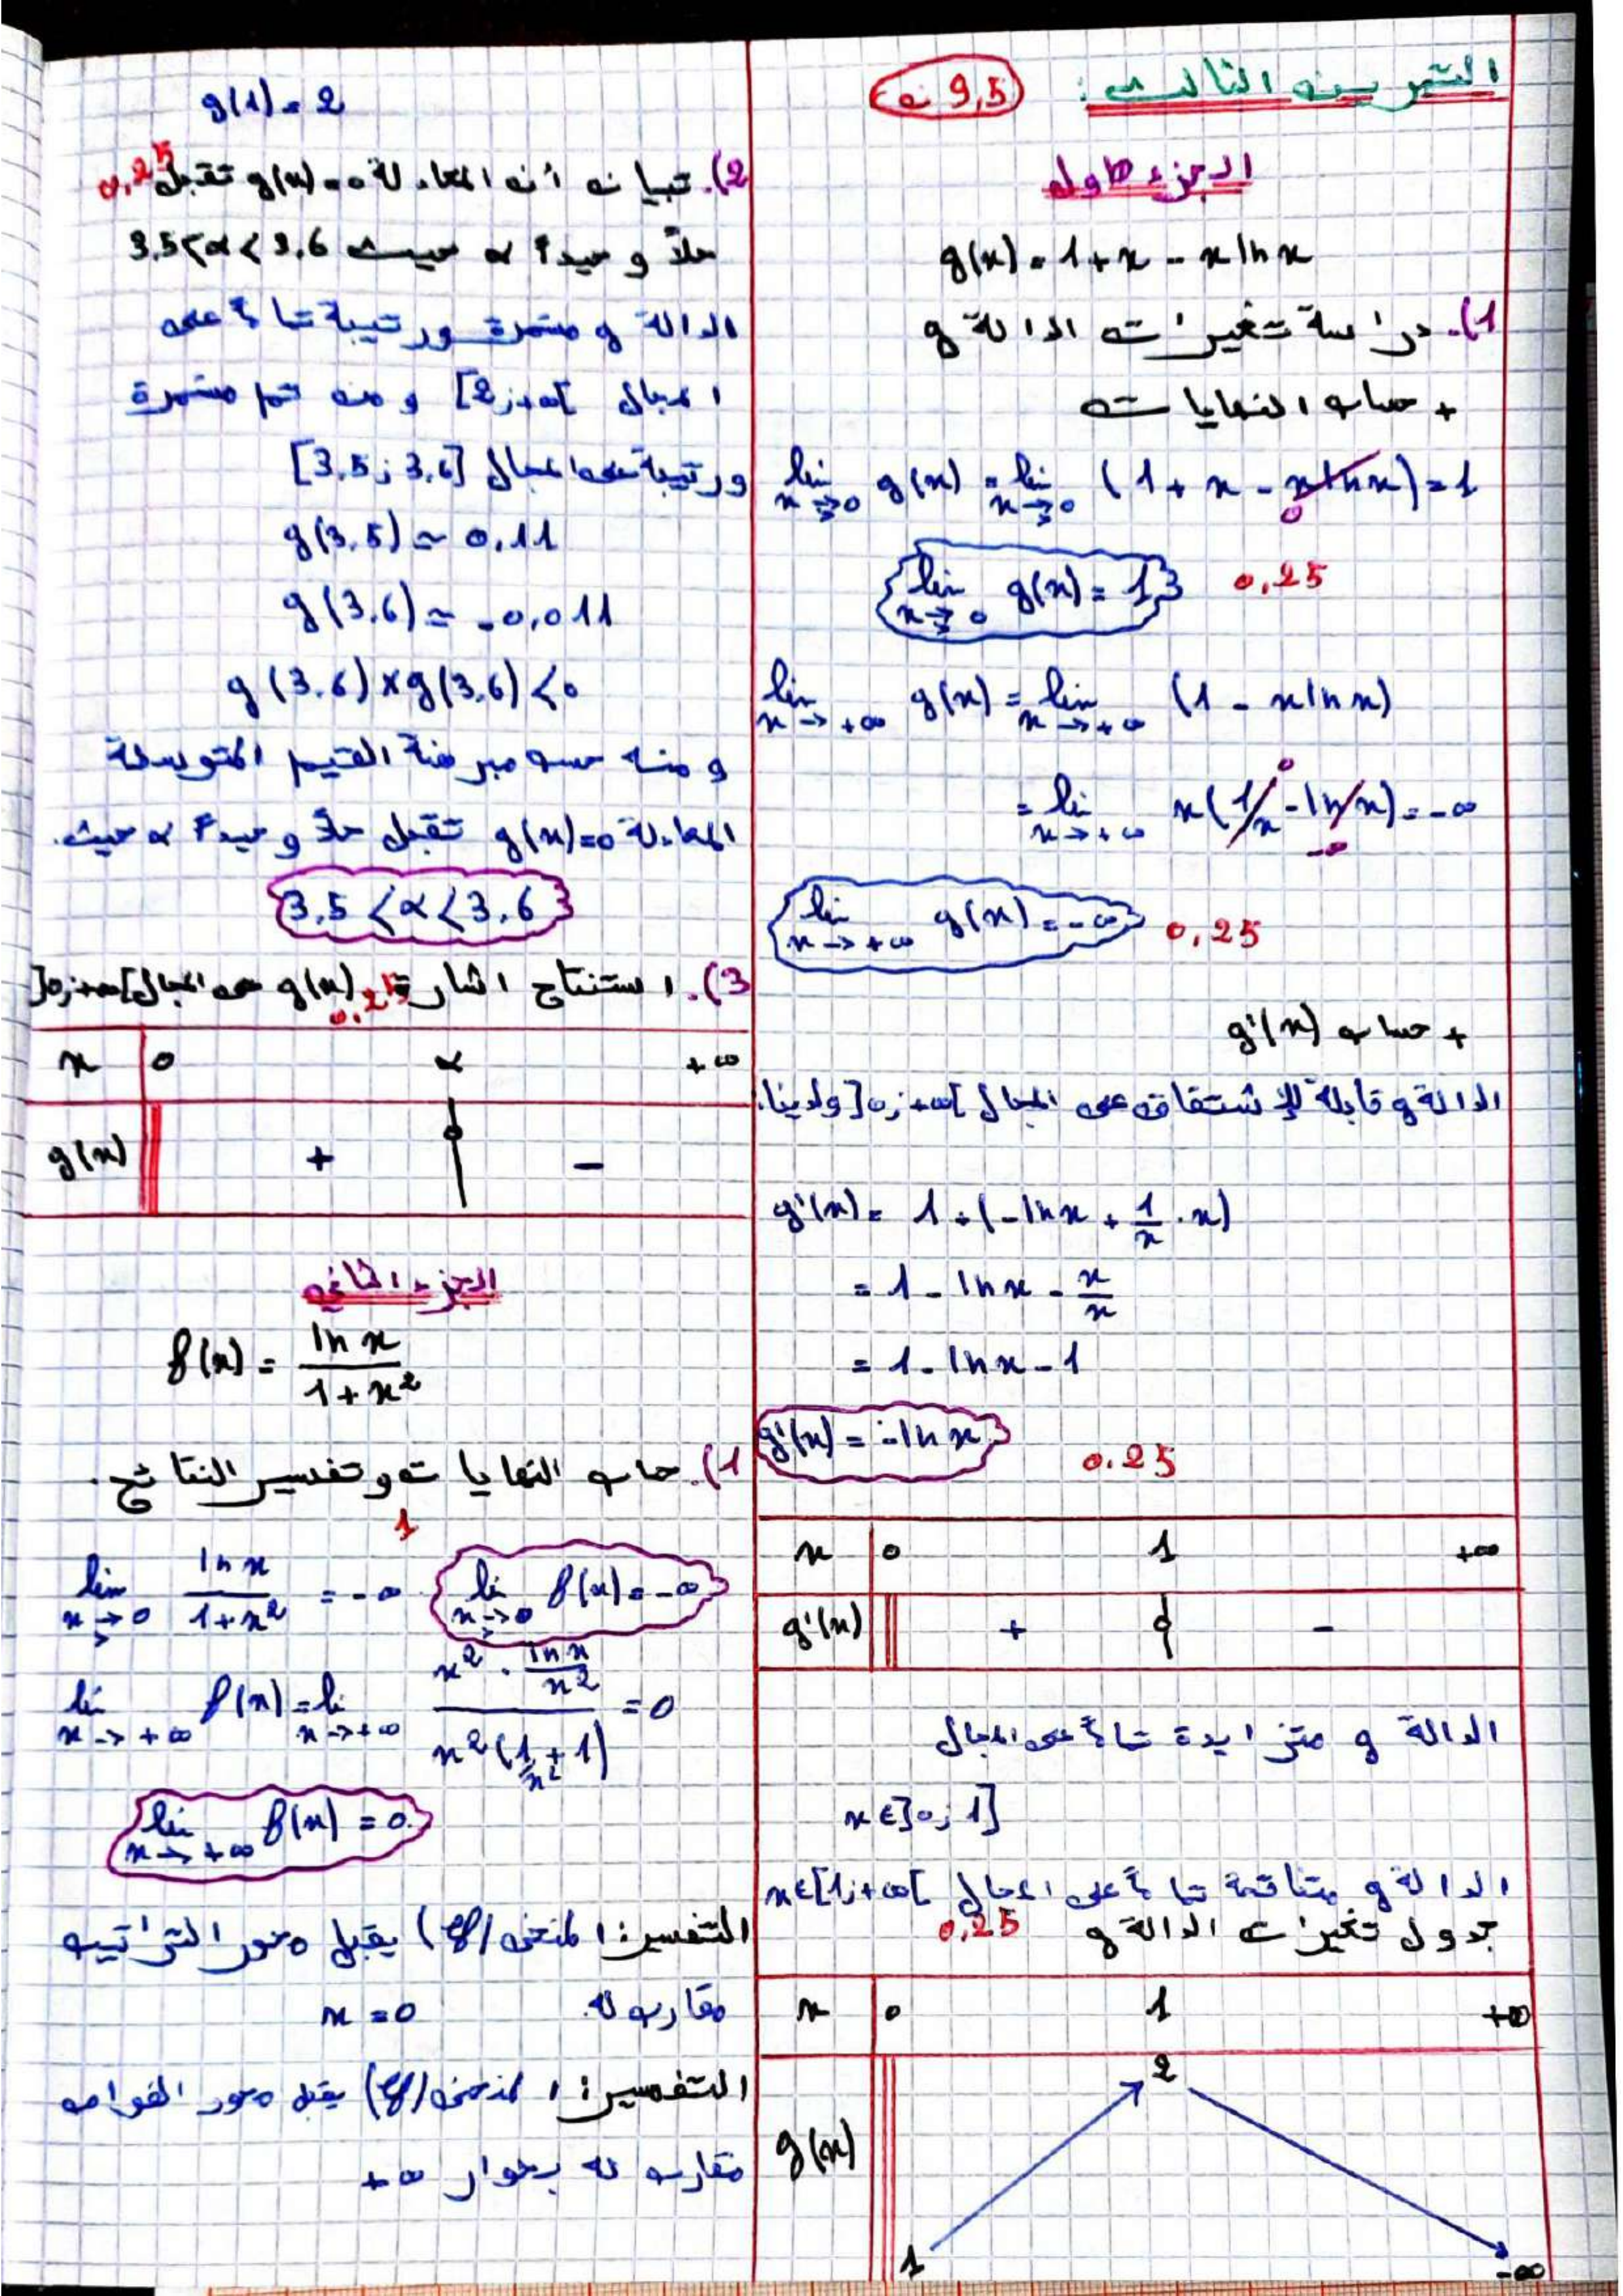 التمرين الثالث: (9,5 ن)
الجزء الأول
g(x) = 1 + x - x ln x
1). دراسة تغيرات الدالة g
+ حساب النهايات
lim x→0 g(x) = lim x→0 (1 + x - x ln x) = 1
0
lim x→0 g(x) = 1 0,25
lim x→+∞ g(x) = lim x→+∞ (1 - x ln x)
= lim x→+∞ x(1/x - ln x) = -∞
lim x→+∞ g(x) = -∞ 0,25
+ حساب g'(x)
الدالة g قابلة للإشتقاق على المجال ]0;+∞[ ولدينا:
g'(x) = 1 + (-ln x + 1/x . x)
= 1 - ln x - x/x
= 1 - ln x - 1
g'(x) = -ln x 0.25
x 0 1 +∞
g'(x) + 0 -
الدالة g متزايدة تماماً على المجال
x∈]0;1]
الدالة g متناقصة تماماً على المجال x∈[1;+∞[
جدول تغيرات الدالة g 0,25
x 0 1 +∞
2
g(x)
1 -∞
g(1) = 2
2). تبيان أن المعادلة g(x) = 0 تقبل 0,25
حلاً وحيداً α حيث 3.5<α<3.6
الدالة g مستمرة ورتيبة تماماً على
المجال [2;+∞[ ومن ثم مستمرة
ورتيبة على المجال [3.5;3.6]
g(3.5) ≃ 0.11
g(3.6) ≃ -0,011
g(3.6)×g(3.6)<0
ومنه حسب مبرهنة القيم المتوسطة
المعادلة g(x)=0 تقبل حلاً وحيداً α حيث.
3.5<α<3.6
3). استنتاج اشارة g(x) على المجال ]0;+∞[ 0.25
x 0 α +∞
g(x) + 0 -
الجزء الثاني
f(x) = ln x / 1+x²
1). حساب النهايات وتفسير النتائج.
1
lim x→0 ln x / 1+x² = -∞ lim x→0 f(x) = -∞
lim x→+∞ f(x) = lim x→+∞ x² . ln x/x² / x²(1/x² + 1) = 0
lim x→+∞ f(x) = 0
التفسير: المنحنى (Cf) يقبل محور التراتيب
مقارب له. x = 0
التفسير: المنحنى (Cf) يقبل محور الفواصل
مقارب له بجوار +∞